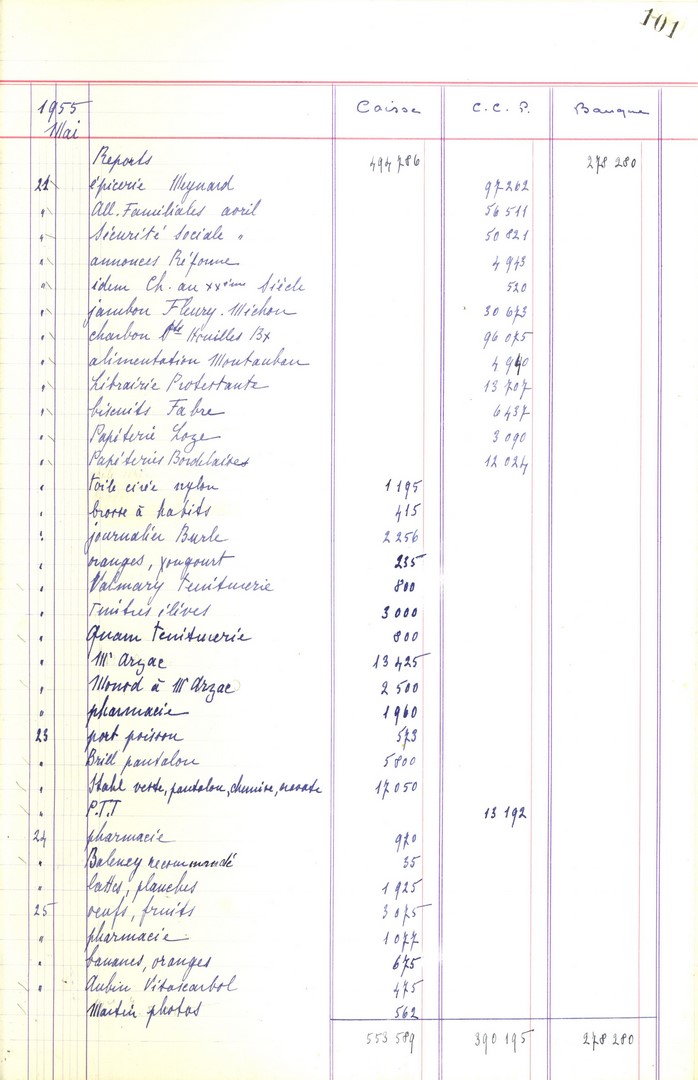 101
1955 Caisse C.C.P. Banque
Mai
Reports 494 786 278 280
21 épicerie Meynard 97 262
" All. Familiales avril 56 511
" Sécurité Sociale " 50 821
" annonces Réforme 4 943
" idem Ch. au XXème Siècle 520
" jambon Fleury-Michon 30 673
" charbon Sté Houilles Bx 96 075
" alimentation Montauban 4 940
" Librairie Protestante 13 707
" biscuits Fabre 6 437
" Papéterie Loze 3 090
" Papéteries Bordelaises 12 024
" toile cirée nylon 1 195
" brosse à habits 415
" journalier Burle 2 256
" oranges, yougourt 235
" Valmary teinturerie 800
" Timbres élèves 3 000
" Quam teinturerie 800
" Mr Arzac 13 425
" Monod à Mr Arzac 2 500
" pharmacie 1 960
23 port poisson 573
" Brill pantalon 5 800
" Stahl veste, pantalon, chemise, cravate 17 050
" P.T.T 13 192
24 pharmacie 970
" Baleney recommandé 35
" lattes, planches 1 925
25 oeufs, fruits 3 075
" pharmacie 1 077
" bananes, oranges 675
" Aubin Vitascarbol 475
Martin photos 562
553 589 390 195 278 280